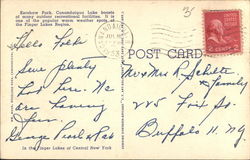 Rainbow Park, Canandaigua Lake boasts
of many outdoor recreational facilities. It is
one of the popular warm weather spots of
the Finger Lakes Region.
Hello Folks
Sure plenty
hot here. We
are having
fun.
George Pearl & Rob
In the Finger Lakes of Central New York
3
POST CARD
Mr & Mrs R Schultz
& Family
225 Fox St.
Buffalo 11 NY